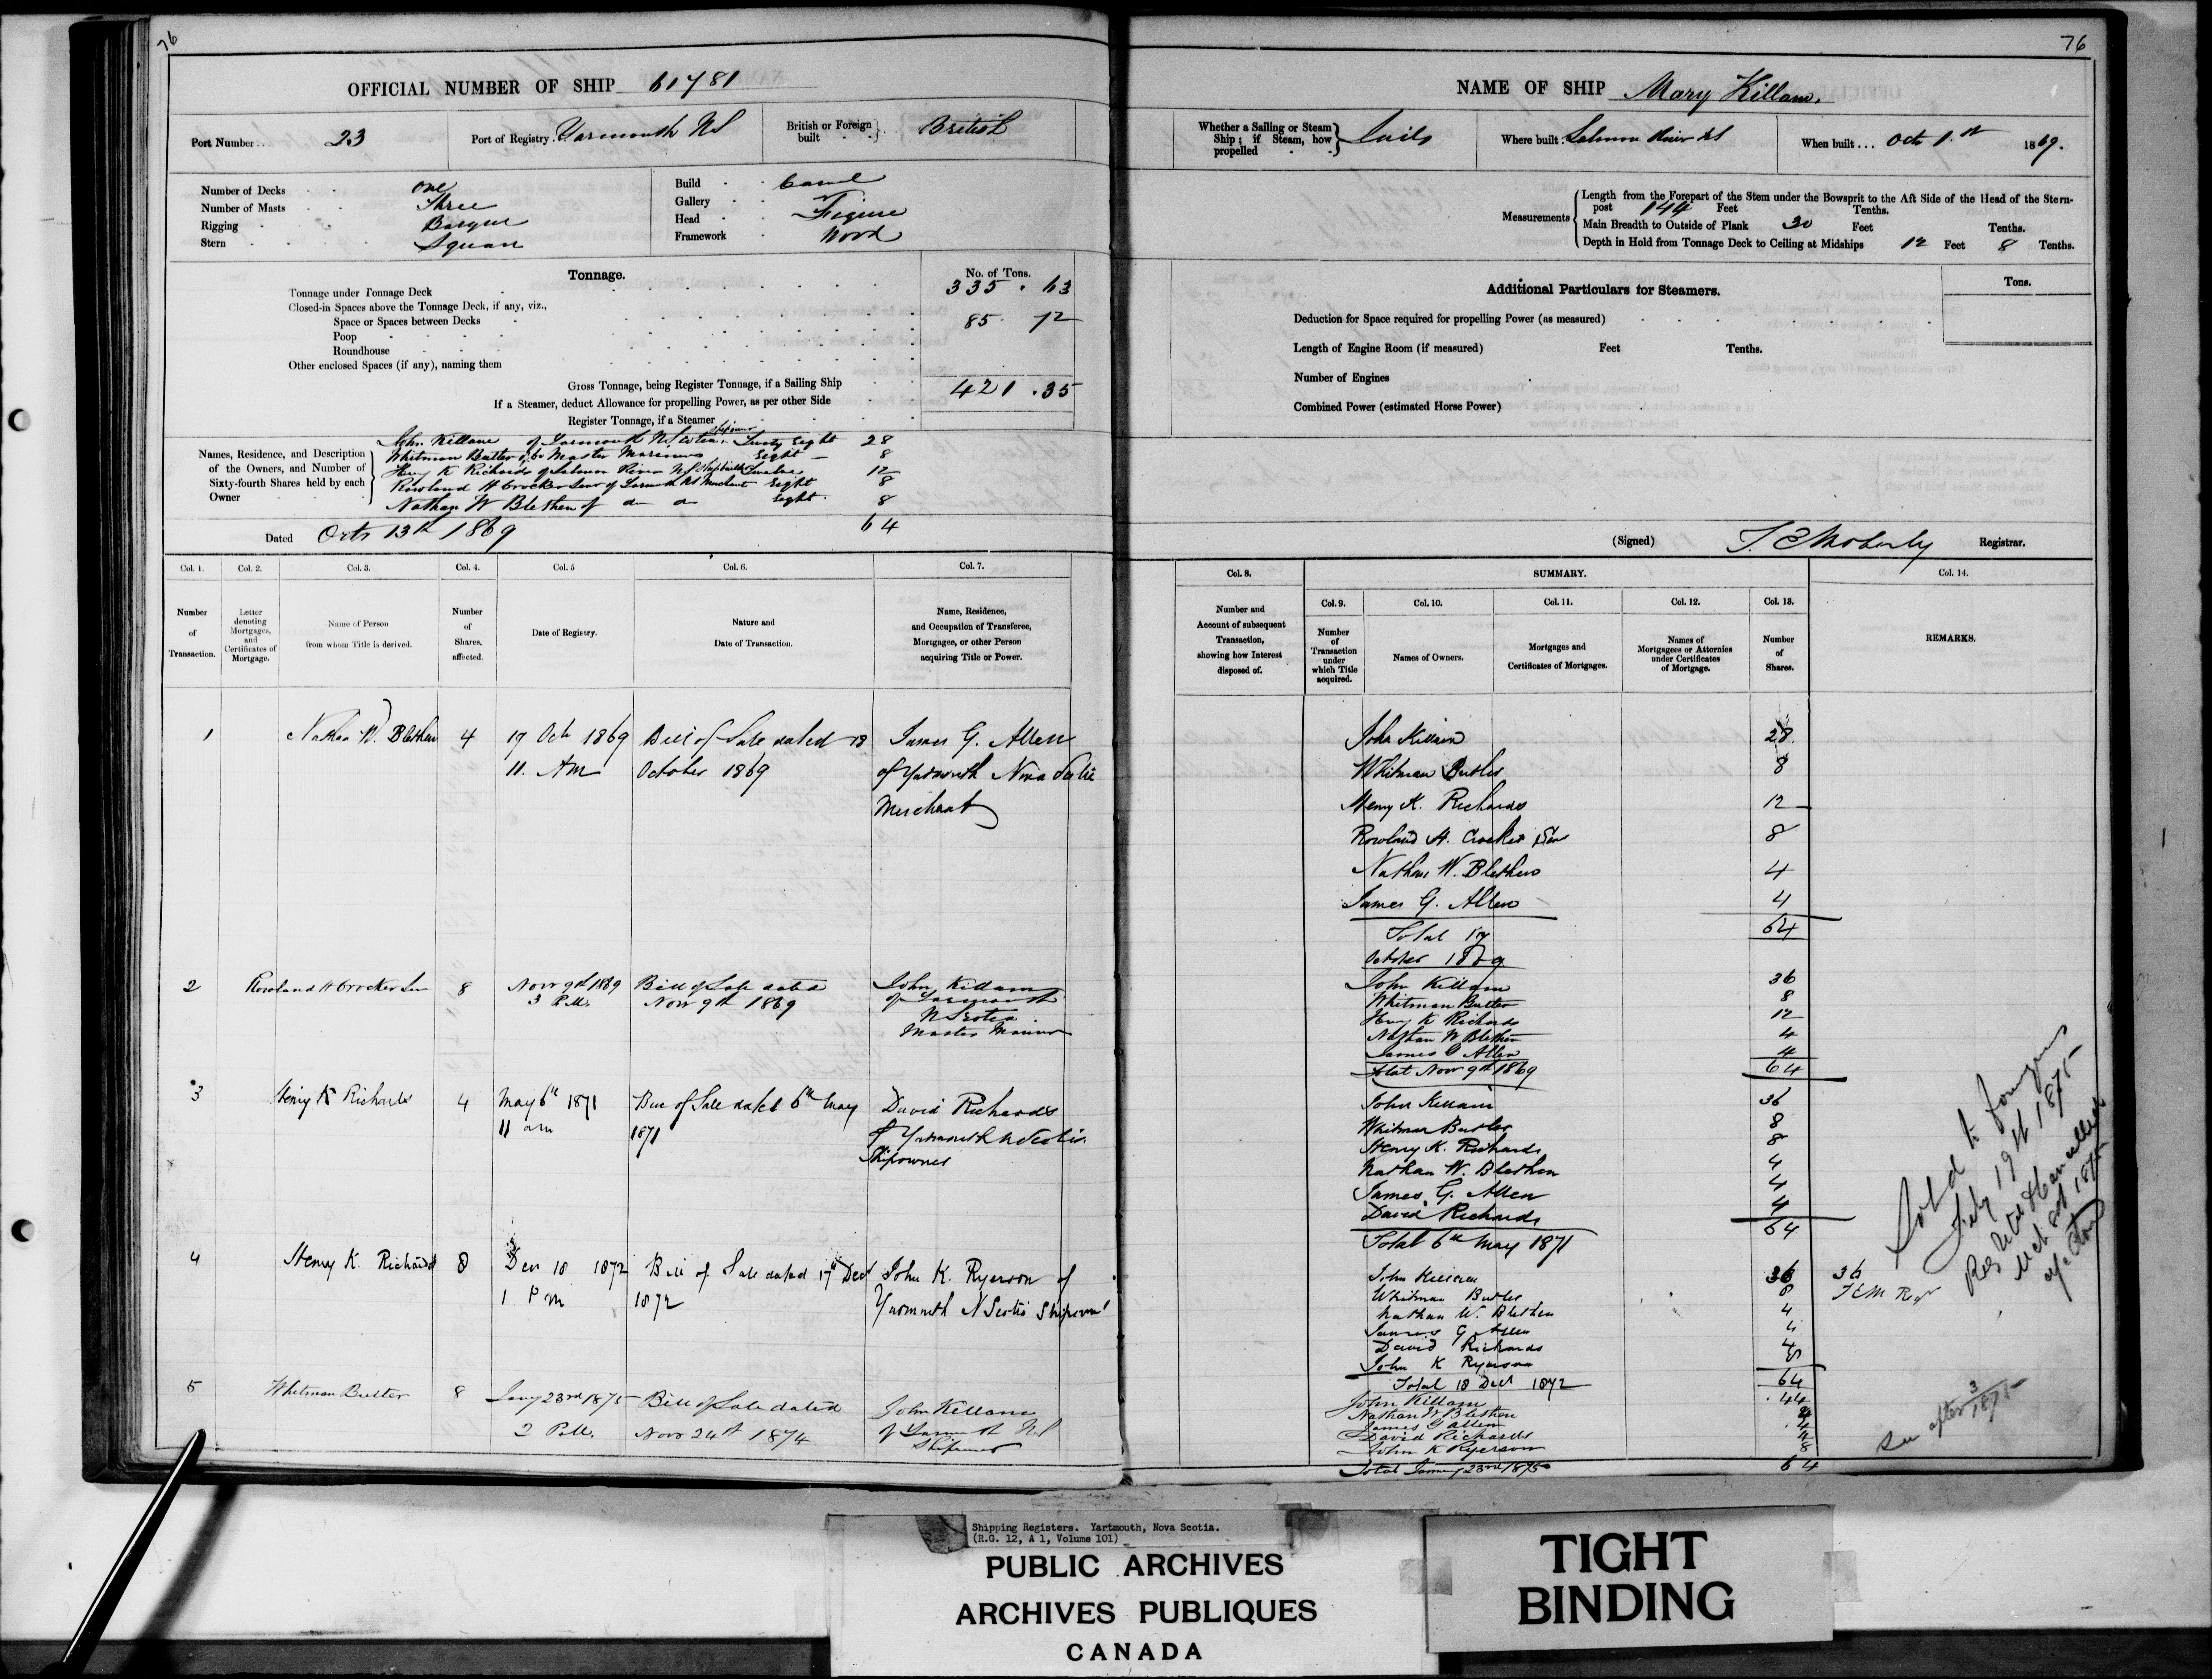 76
OFFICIAL NUMBER OF SHIP 61781
Port Number... 23
Port of Registry. Yarmouth NS
British or Foreign built British
Number of Decks One
Number of Masts Three
Rigging Barque
Stern Square
Build Carvel
Gallery
Head Figure
Framework Wood
Tonnage.
No. of Tons.
Tonnage under Tonnage Deck 335 . 63
Closed-in Spaces above the Tonnage Deck, if any, viz.,
Space or Spaces between Decks 85. 72
Poop
Roundhouse
Other enclosed Spaces (if any), naming them
Gross Tonnage, being Register Tonnage, if a Sailing Ship 421 .35
If a Steamer, deduct Allowance for propelling Power, as per other Side
Register Tonnage, if a Steamer
Names, Residence, and Description of the Owners, and Number of Sixty-fourth Shares held by each Owner
John Killam of Yarmouth N. Scotia Shipowner Twenty Eight 28
Whitman Butler of do Master Mariner Eight 8
Henry K Richards of Salmon River N.S Shipbuilder Twelve 12
Rowland H Crocker Senr of Yarmouth NS Merchant Eight 8
Nathan W Blethen of do do Eight 8
64
Dated Octr 13th 1869
Col. 1.
Col. 2.
Col. 3.
Col. 4.
Col. 5
Col. 6.
Col. 7.
Number of Transaction.
Letter denoting Mortgages, and Certificates of Mortgage.
Name of Person from whom Title is derived.
Number of Shares, affected.
Date of Registry.
Nature and Date of Transaction.
Name, Residence, and Occupation of Transferee, Mortgagee, or other Person acquiring Title or Power.
1 Nathan W. Blethen 4 19 Oct 1869 Bill of Sale dated 18 James G. Allen
11. AM October 1869 of Yarmouth Nova Scotia
Merchant
2 Rowland H Crocker Senr 8 Novr 9th 1869 Bill of Sale dated John Killam
3 P.M. Novr 9th 1869 of Yarmouth
N Scotia
Master Mariner
3 Henry K Richards 4 May 6th 1871 Bill of Sale dated 6th May David Richards
11 am 1871 of Yarmouth N Scotia
Shipowner
4 Henry K. Richards 8 Decr 18 1872 Bill of Sale dated 17th Decr John K. Ryerson of
1 Pm 1872 Yarmouth N Scotia Shipowner
5 Whitman Butler 8 Jany 23rd 1875 Bill of Sale dated John Killam
2 P.M. Novr 24th 1874 of Yarmouth NS
Shipowner
76
NAME OF SHIP Mary Killam.
Whether a Sailing or Steam Ship; if Steam, how propelled Sails
Where built. Salmon River NS
When built... Octr 1.st 1869.
Measurements
Length from the Forepart of the Stem under the Bowsprit to the Aft Side of the Head of the Stern-
post 144 Feet Tenths.
Main Breadth to Outside of Plank 30 Feet Tenths.
Depth in Hold from Tonnage Deck to Ceiling at Midships 12 Feet 8 Tenths.
Additional Particulars for Steamers.
Tons.
Deduction for Space required for propelling Power (as measured)
Length of Engine Room (if measured) Feet Tenths.
Number of Engines
Combined Power (estimated Horse Power)
(Signed) T. E Moberly Registrar.
Col. 8.
SUMMARY.
Col. 14.
Col. 9.
Col. 10.
Col. 11.
Col. 12.
Col. 13.
Number and Account of subsequent Transaction, showing how Interest disposed of.
Number of Transaction under which Title acquired.
Names of Owners.
Mortgages and Certificates of Mortgages.
Names of Mortgagees or Attornies under Certificates of Mortgage.
Number of Shares.
REMARKS.
John Killam 28
Whitman Butler 8
Henry K. Richards 12
Rowland H. Crocker Senr 8
Nathan W. Blethen 4
James G. Allen 4
Total 19 64
October 1869
John Killam 36
Whitman Butler 8
Henry K Richards 12
Nathan W Blethen 4
James G Allen 4
Total Novr 9th 1869 64
John Killam 36
Whitman Butler 8
Henry K. Richards 8
Nathan W. Blethen 4
James G. Allen 4
David Richards 4
Total 6th May 1871 64
John Killam 36 36
Whitman Butler 8 TEM Regr
Nathan W. Blethen 4
James G Allen 4
David Richards 4
John K Ryerson 8
Total 18 Decr 1872 64
John Killam 44
Nathan W Blethen 4
James G Allen 4
David Richards 4
John K Ryerson 8
Total January 23rd 1875 64
Sold to foreigners
July 19th 1875
1875
See after 3/1875
Shipping Registers. Yartmouth, Nova Scotia.
(R.G. 12, A 1, Volume 101)
PUBLIC ARCHIVES
ARCHIVES PUBLIQUES
CANADA
TIGHT
BINDING